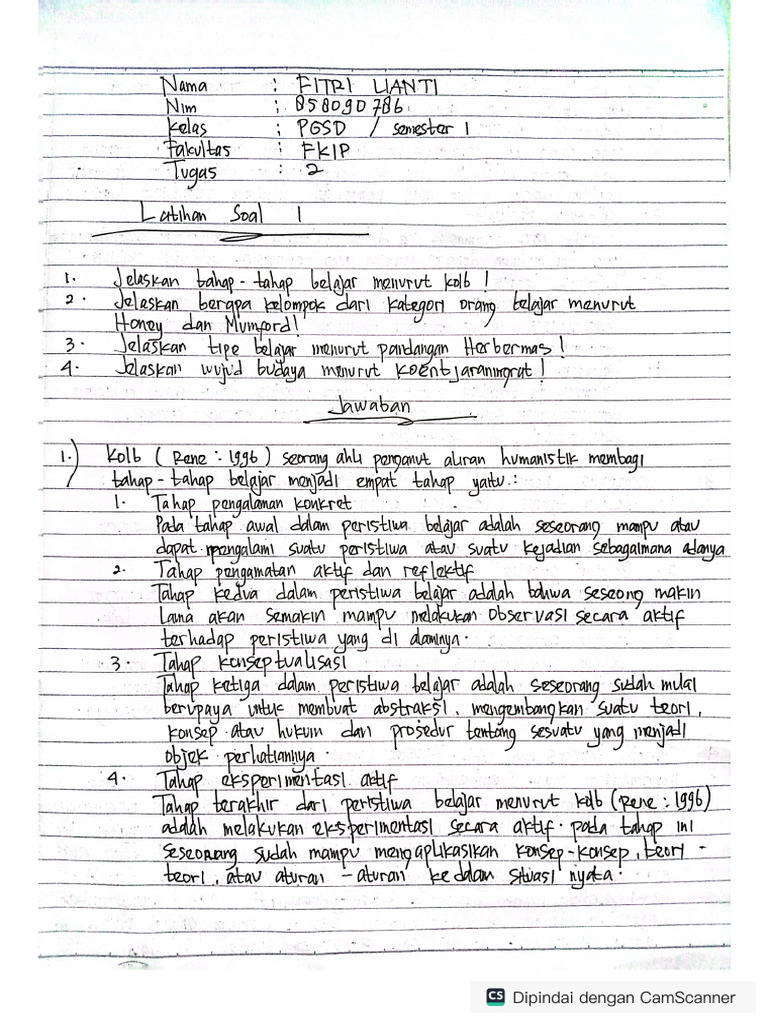 Nama : FITRI LIANTI
Nim : 858090786
Kelas : PGSD / semester 1
Fakultas : FKIP
Tugas : 2
Latihan Soal 1
1. Jelaskan tahap-tahap belajar menurut kolb !
2. Jelaskan berapa kelompok dari kategori orang belajar menurut
Honey dan Mumford!
3. Jelaskan tipe belajar menurut pandangan Herbermas !
4. Jelaskan wujud budaya menurut koentjaraningrat !
Jawaban
1.) Kolb ( Rene : 1996 ) seorang ahli penganut aliran humanistik membagi
tahap-tahap belajar menjadi empat tahap yaitu :
1. Tahap pengalaman konkret
Pada tahap awal dalam peristiwa belajar adalah seseorang mampu atau
dapat mengalami suatu peristiwa atau suatu kejadian sebagaimana adanya
2. Tahap pengamatan aktif dan reflektif
Tahap kedua dalam peristiwa belajar adalah bahwa seseong makin
Lama akan semakin mampu melakukan observasi secara aktif
terhadap peristiwa yang di alaminya.
3. Tahap konseptualisasi
Tahap ketiga dalam peristiwa belajar adalah seseorang sudah mulai
berupaya untuk membuat abstraksi, mengembangkan suatu teori,
konsep atau hukum dan prosedur tentang sesuatu yang menjadi
objek perhatiannya.
4. Tahap eksperimentasi aktif
Tahap terakhir dari peristiwa belajar menurut kolb (Rene : 1996)
adalah melakukan eksperimentasi secara aktif. pada tahap ini
seseorang sudah mampu mengaplikasikan konsep-konsep, teori -
teori, atau aturan - aturan ke dalam situasi nyata.
CS Dipindai dengan CamScanner